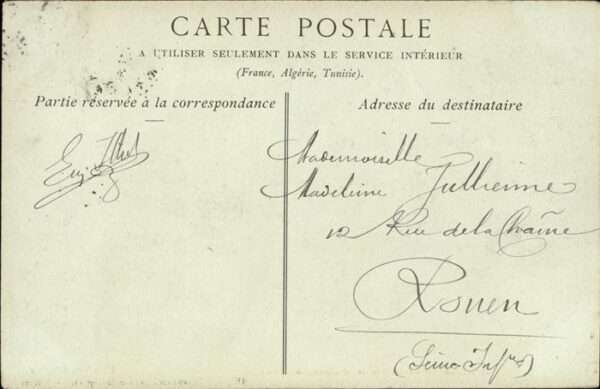 CARTE POSTALE
A UTILISER SEULEMENT DANS LE SERVICE INTÉRIEUR
(France, Algérie, Tunisie).
Partie réservée à la correspondance
Adresse du destinataire
Mademoiselle
Madeleine Jullienne
12 Rue de la Chaîne
Rouen
(Seine Infre)